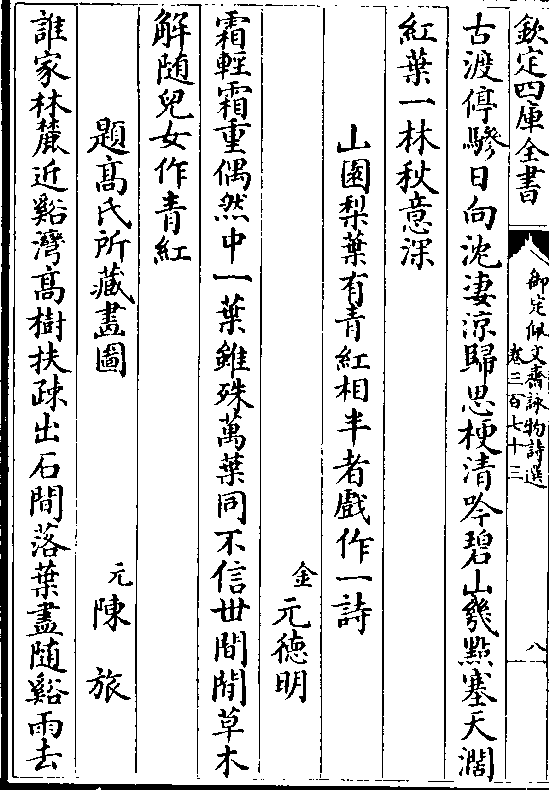 欽定四庫全書
御定佩文齋詠物詩選
卷三百七十三
八
古渡停驂日向沈淒涼歸思梗清吟碧山幾點塞天濶
紅葉一林秋意深
山園梨葉有青紅相半者戲作一詩
金 元德明
霜輕霜重偶然中一葉雖殊萬葉同不信世間閒草木
解随兒女作青紅
題髙氏所藏畫圖
元 陳旅
誰家林麓近谿灣髙樹扶疎出石間落葉盡随谿雨去